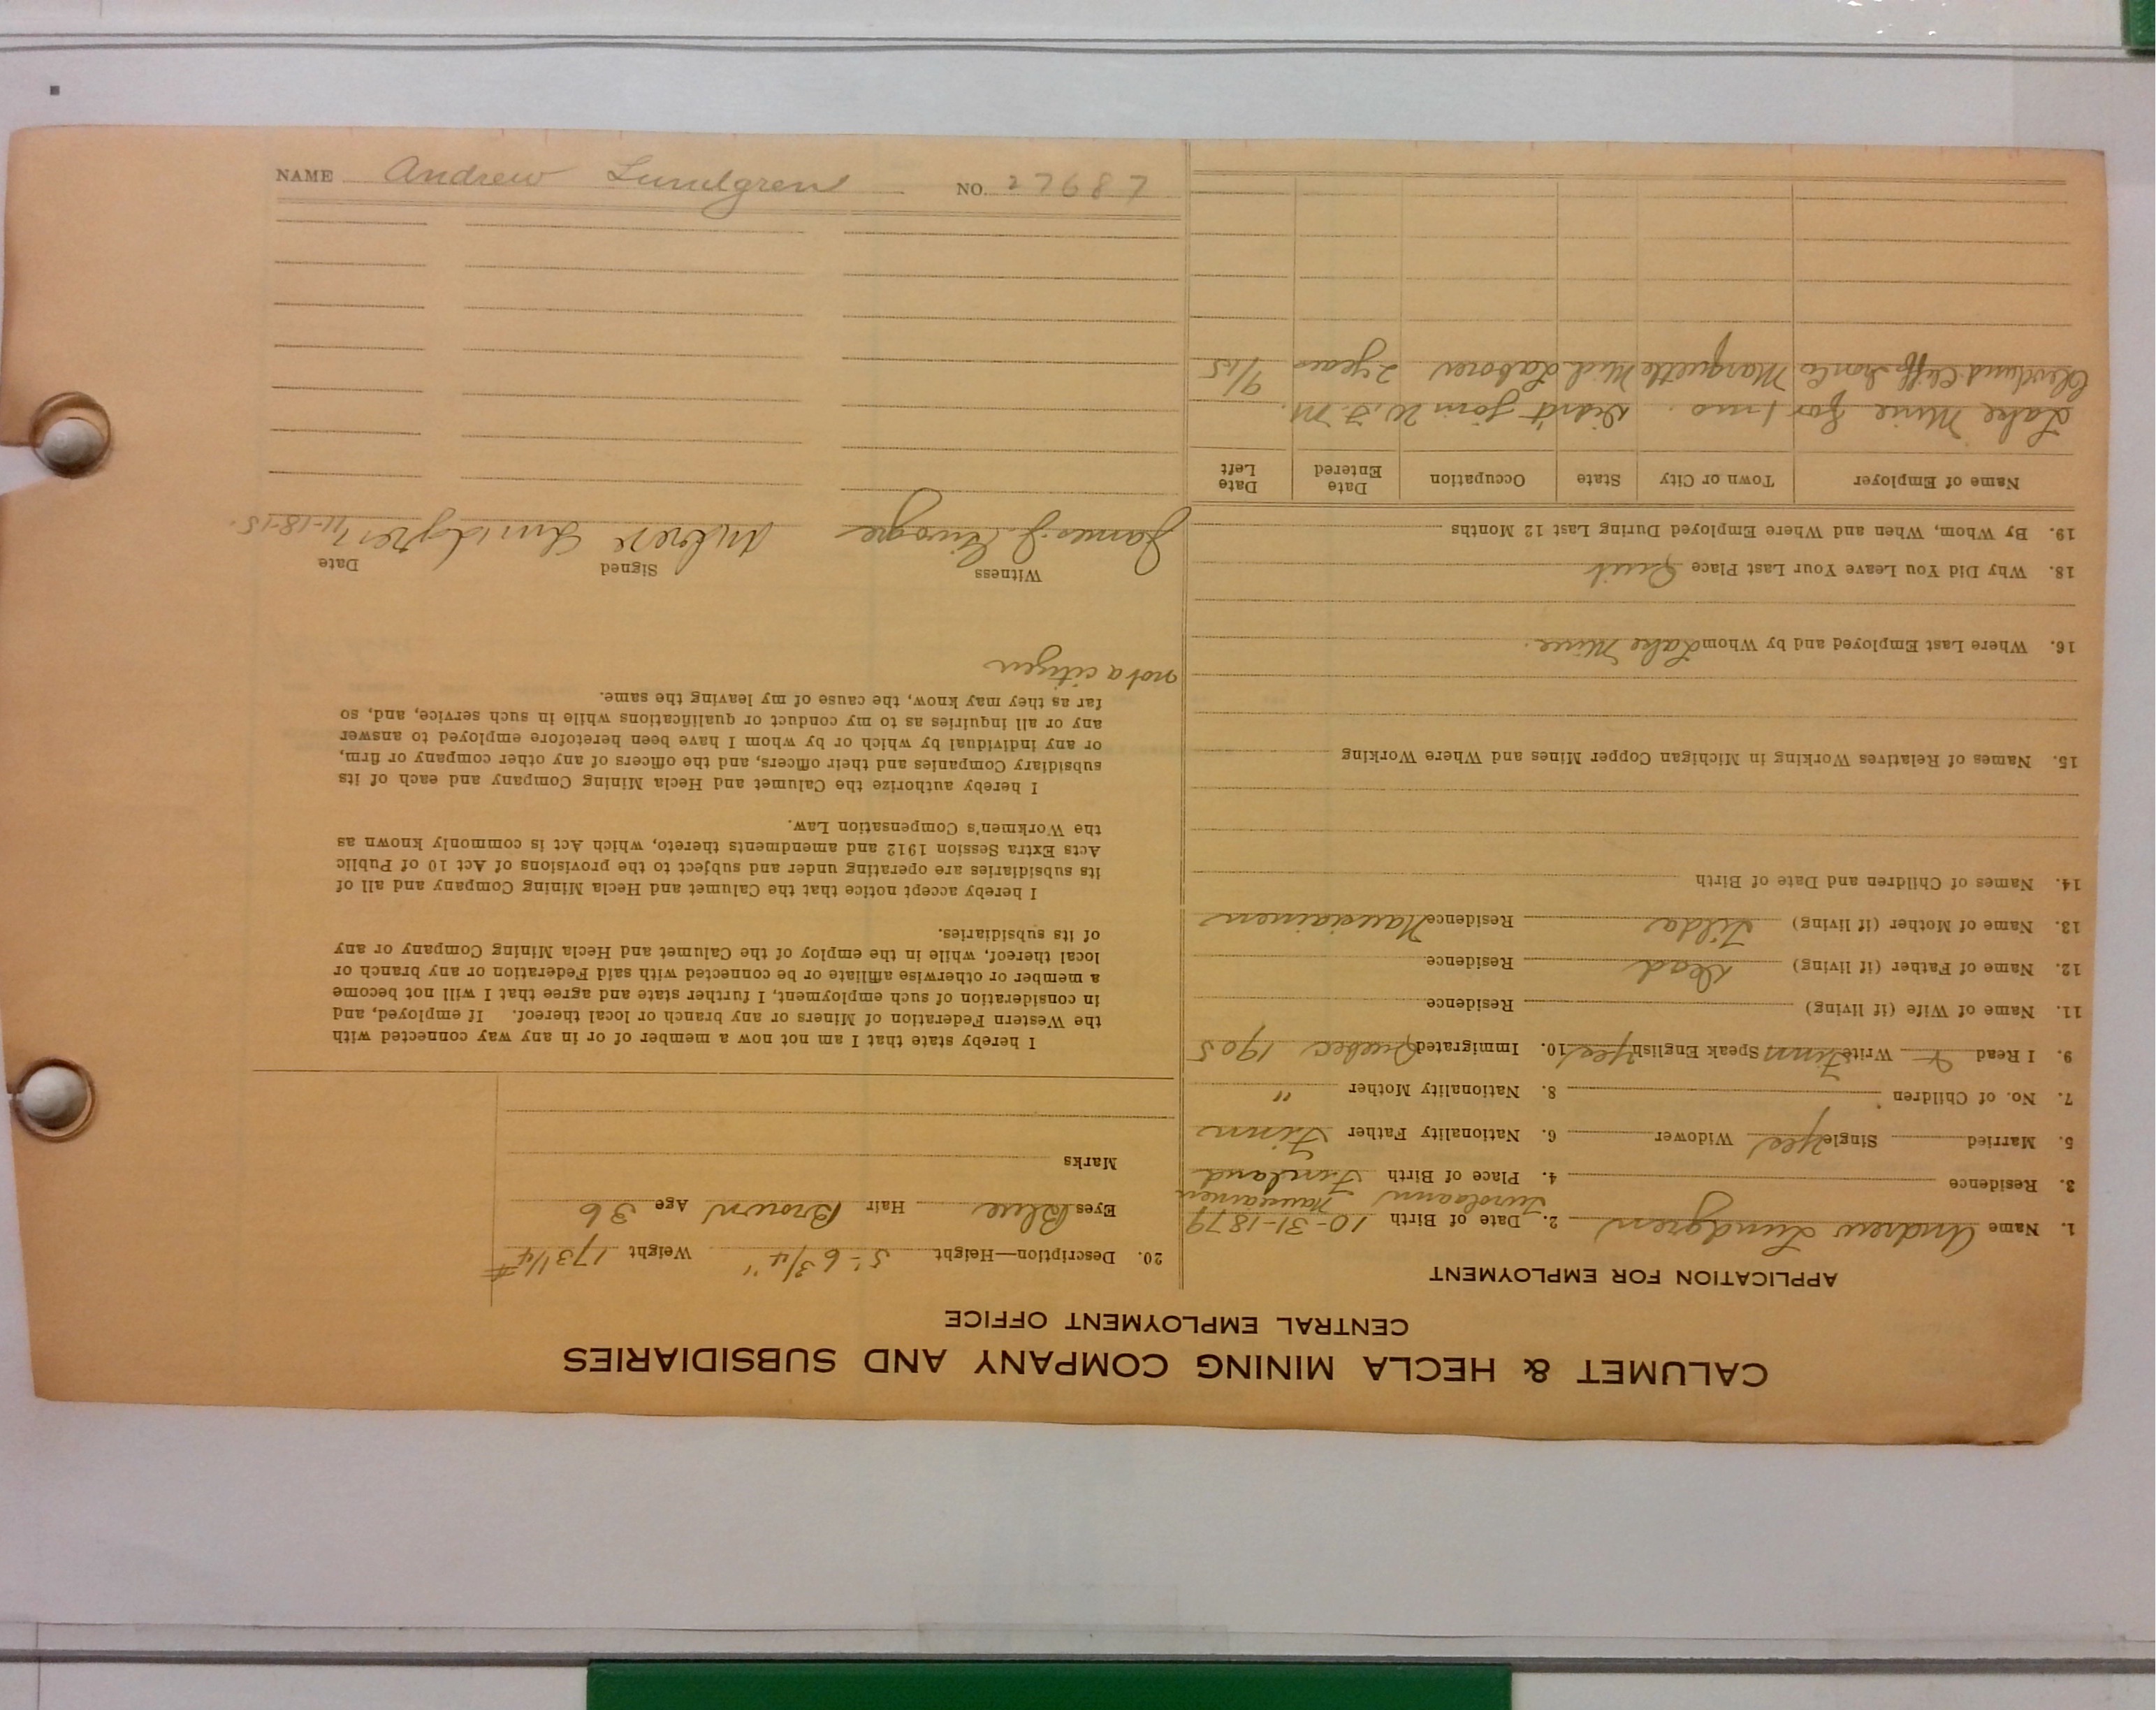 CALUMET & HECLA MINING COMPANY AND SUBSIDIARIES
CENTRAL EMPLOYMENT OFFICE
APPLICATION FOR EMPLOYMENT
1. Name Andrew Lundgren 2. Date of Birth 10-31-1879
3. Residence 4. Place of Birth Finland
5. Married Single yes Widower 6. Nationality Father Finn
7. No. of Children 8. Nationality Mother "
9. I Read & Write Finn Speak English yes 10. Immigrated Quebec 1905
11. Name of Wife (if living) Residence
12. Name of Father (if living) Dead Residence
13. Name of Mother (if living) Hilda Residence
14. Names of Children and Date of Birth
15. Names of Relatives Working in Michigan Copper Mines and Where Working
16. Where Last Employed and by Whom Lake Mine.
18. Why Did You Leave Your Last Place Quit
19. By Whom, When and Where Employed During Last 12 Months
Name of Employer Town or City State Occupation Date Entered Date Left
Lake Mine for 1 mo. Didn't join W.F.M.
Cleveland Cliffs Marquette Mich Laborer 2 years 9/15
20. Description—Height 5'-6 3/4" Weight 173 1/4 #
Eyes Blue Hair Brown Age 36
Marks
I hereby state that I am not now a member of or in any way connected with
the Western Federation of Miners or any branch or local thereof. If employed, and
in consideration of such employment, I further state and agree that I will not become
a member or otherwise affiliate or be connected with said Federation or any branch or
local thereof, while in the employ of the Calumet and Hecla Mining Company or any
of its subsidiaries.
I hereby accept notice that the Calumet and Hecla Mining Company and all of
its subsidiaries are operating under and subject to the provisions of Act 10 of Public
Acts Extra Session 1912 and amendments thereto, which Act is commonly known as
the Workmen's Compensation Law.
I hereby authorize the Calumet and Hecla Mining Company and each of its
subsidiary Companies and their officers, and the officers of any other company or firm,
or any individual by which or by whom I have been heretofore employed to answer
any or all inquiries as to my conduct or qualifications while in such service, and, so
far as they may know, the cause of my leaving the same.
not a citizen
Witness Signed Date
James J. 11-18-15.
NAME Andrew Lundgren NO. 27687